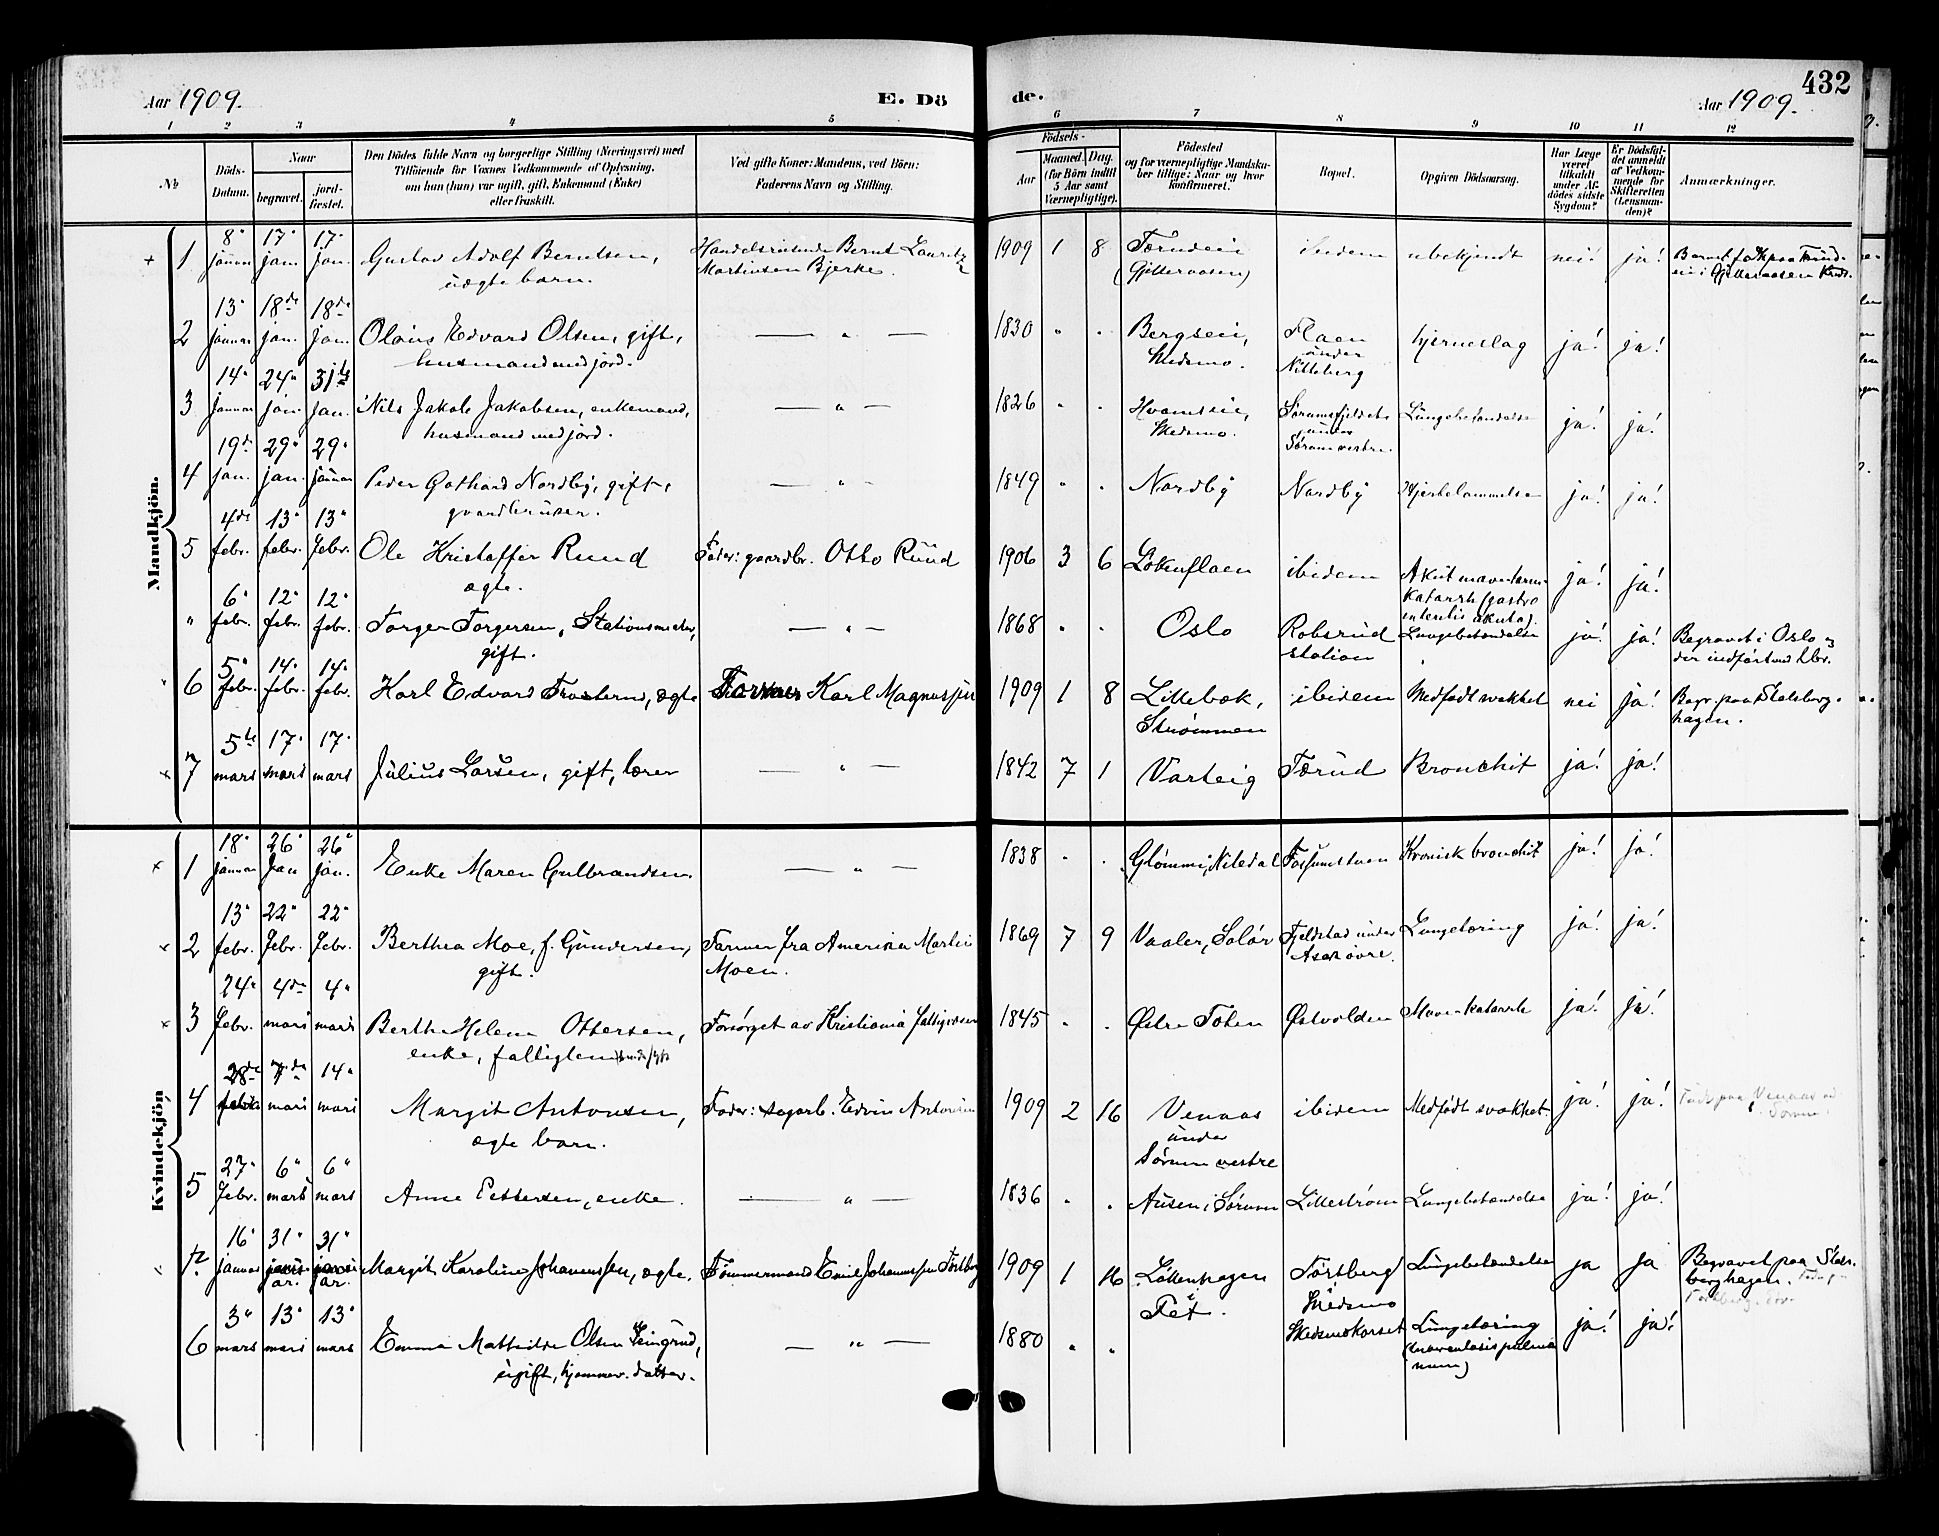 432
Aar 1909.
E. Dö
de.
Aar 1909.
1 2 3 4 5 6 7 8 9 10 11 12
№
Döds-
Datum.
Naar
begravet.
jord-
fæstet.
Den Dödes fulde Navn og borgerlige Stilling (Næringsvei) med
Tilföiende for Voxnes Vedkommende af Oplysning,
om han (hun) var ugift, gift, Enkemand (Enke)
eller fraskilt.
Ved gifte Koner: Mandens, ved Börn:
Faderens Navn og Stilling.
Födsels-
Aar
Maaned.
Dag.
(for Börn indtil
5 Aar samt
Værnepligtige).
Födested
og for værnepligtige Mandska-
ber tillige: Naar og hvor
konfirmeret.
Bopæl.
Opgiven Dödsaarsag.
Har Læge
været
tilkaldt
under Af-
dödes sidste
Sygdom?
Er Dödsfal-
det anmeldt
af Vedkom-
mende for
Skifteretten
(Lensman-
den)?
Anmærkninger.
Mandkjön.
1 8 januar 17 jan. 17 jan. Gustav Adolf Berntsen, Handelsreisende Bernt Lauritz 1909 1 8 ibidem ubekjendt nei! ja!
uægte barn. Martinsen Bjerke. (Gjelleraasen)
2 13 januar 18de jan. 18de jan. Olaus Edvard Olsen, gift, — " — 1830 " " Bergseie, Flaen hjerneslag ja! ja!
husmand med jord. Skedsmo. under
Nitteberg
3 14 januar 24 jan. 31te jan. Nils Jakob Jakobsen, enkemand, — " — 1826 " " Hvamseie, Sørumsfjeldet Lungebetændelse ja! ja!
husmand med jord. Skedsmo. under
Sørum vestre.
4 19de jan. 29 jan. 29 januar Peder Gothard Nordby, gift, — " — 1849 " " Nordby Nordby Hjertelammelse ja! ja!
gaardbruger.
5 4de febr. 13 febr. 13 febr. Ole Kristoffer Ruud Fader: gaardbr. Otto Ruud 1906 3 6 Lökenflaen ibidem Akut mavetarm- ja! ja!
ægte. katarrh (gastro
enteritis akuta).
" 6 febr. 12 febr. 12 febr. Torger Torgersen, Stationsmester, — " — 1868 " " Oslo Robsrud Lungebetændelse ja! ja! Begravet i Oslo og
gift. station der indført ved
6 5 febr. 14 febr. 14 febr. Karl Edvard, ægte Karl Magnussen 1909 1 8 Lillebæk, ibidem Medfødt svakhet nei ja! Begr. paa Stalsberg-
Strømmen hagen.
7 5te mars 17 mars 17 mars Julius Larsen, gift, lærer — " — 1842 7 1 Varteig Tærud Bronchit ja! ja!
Kvindekjön
1 18 januar 26 jan 26 jan. Enke Maren Gulbrandsen — " — 1838 " " Glømmi, Nitedal Kronisk bronchit ja! ja!
2 13 febr. 22 febr. 22 febr. Berthea Moe, f. Gundersen, Farmer fra Amerika Martin 1869 7 9 Vaaler, Solør Fjeldstad under Lungetæring ja! ja!
gift. Moen. Asak øvre.
3 24 febr. 4de mars 4 mars Berthe Helene Ottersen, Forsørget av Kristiania fattigvæsen 1845 " " Østre Toten Østvolden Mavekatarrh ja! ja!
enke, fattiglem
4 28de febr. 7de mars 14 mars Margit Antonsen, Fader: sagarb. Edvin Antonsen 1909 2 16 Venaas ibidem Medfødt svakhet ja! ja!
ægte barn. under
Sørum vestre
5 27 febr. 6 mars 6 mars Anne Pettersen, enke. — " — 1836 " " Ausen i Sørum Lillestrøm Lungebetændelse ja! ja!
16 januar 31 31 Margit Karoline Johannessen, ægte. Tømmermand Emil Johannessen 1909 1 16 Lökenhagen Lungebetændelse ja ja Begravet paa Stals-
Fet. Skedsmo berghagen.
6 3 mars 13 mars 13 mars Emma Mathilde Olsen, — " — 1880 " " Skedsmokorset Lungetæring ja! ja!
ugift, hjemmev. datter. (tuberculosis pulmo
num)